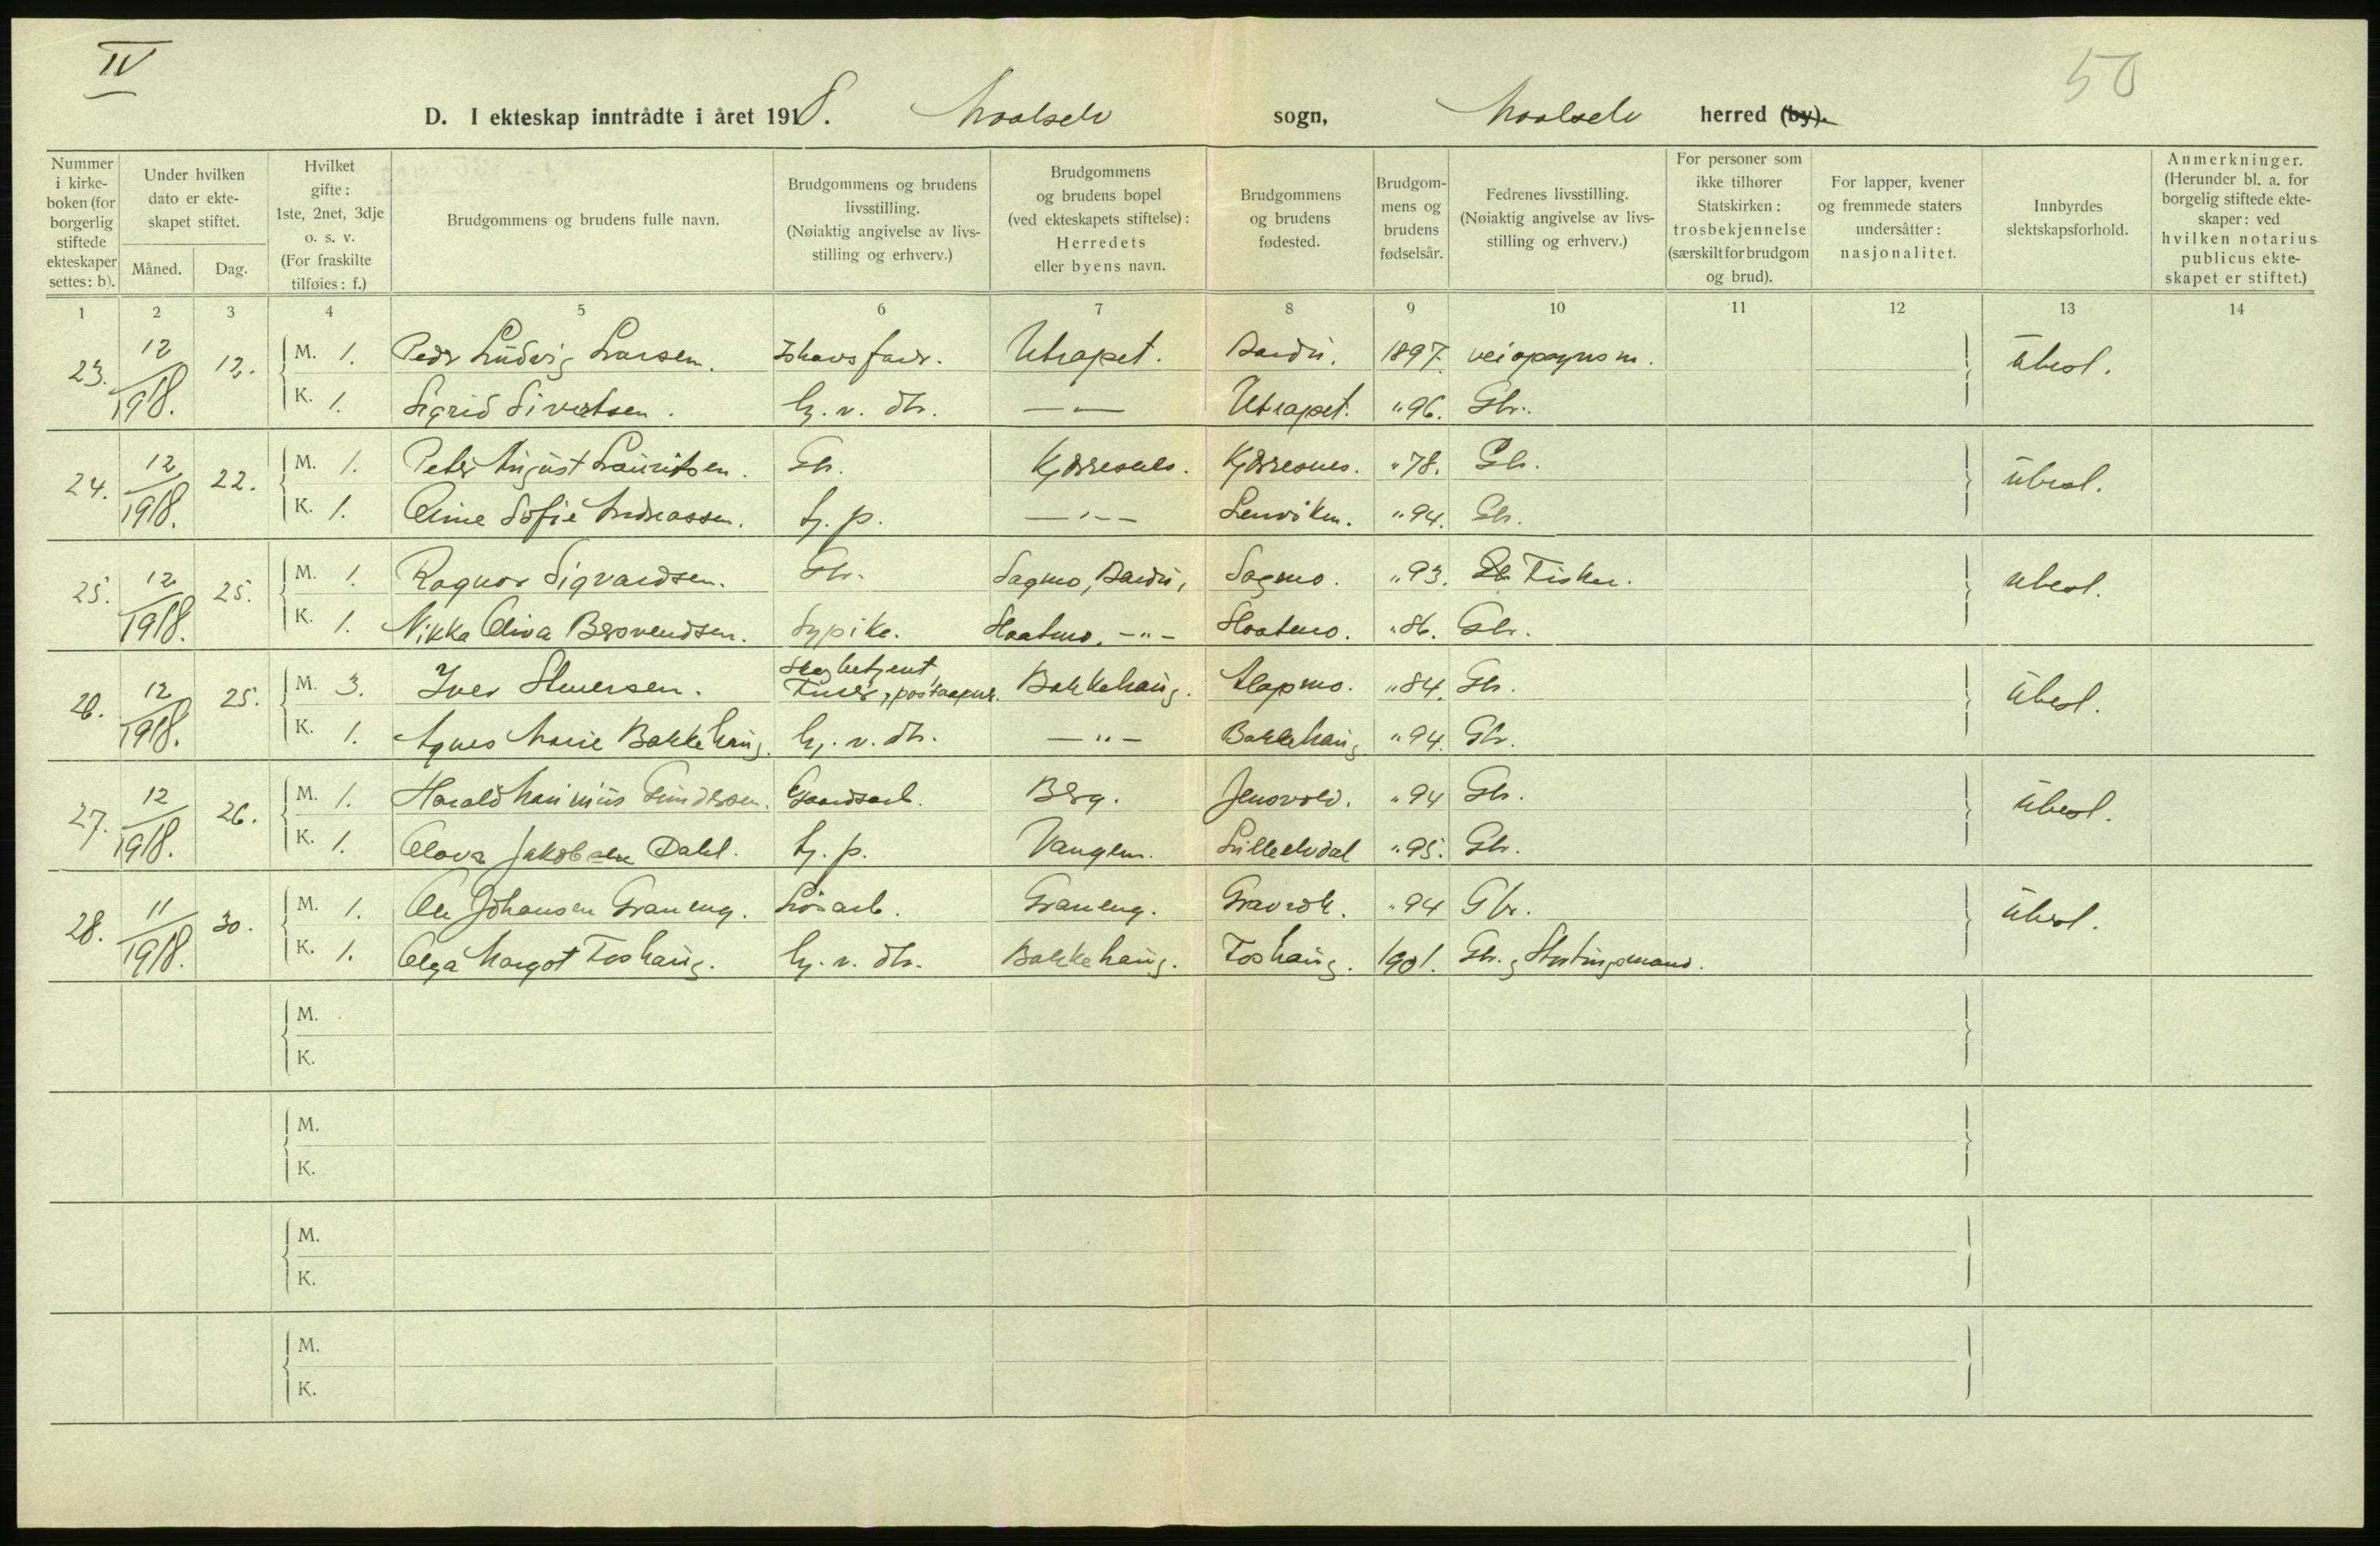 IV
50
D. I ekteskap inntrådte i året 1918. Maalselv sogn, Maalselv herred (by).
Nummer i kirke-boken (for borgerlig stiftede ekteskaper settes: b).
Under hvilken dato er ekte-skapet stiftet.
Måned. Dag.
Hvilket gifte: 1ste, 2net, 3dje o. s. v. (For fraskilte tilføies: f.)
Brudgommens og brudens fulle navn.
Brudgommens og brudens livsstilling. (Nøiaktig angivelse av livs-stilling og erhverv.)
Brudgommens og brudens bopel (ved ekteskapets stiftelse): Herredets eller byens navn.
Brudgommens og brudens fødested.
Brudgom-mens og brudens fødselsår.
Fedrenes livsstilling. (Nøiaktig angivelse av livs-stilling og erhverv.)
For personer som ikke tilhører Statskirken: trosbekjennelse (særskilt for brudgom og brud).
For lapper, kvener og fremmede staters undersåtter: nasjonalitet.
Innbyrdes slektskapsforhold.
Anmerkninger. (Herunder bl. a. for borgelig stiftede ekte-skaper: ved hvilken notarius publicus ekte-skapet er stiftet.)
1 2 3 4 5 6 7 8 9 10 11 12 13 14
23. 12/1918. 12. M. 1. Peder Ludvig Larsen. Ishavsfarer. Utrapet. Bardu. 1897. veiopsynsm. ubesl.
K. 1. Sigrid Sivertsen. hj. v. dtr. — — Utrapet. "96. Gbr.
24. 12/1918. 22. M. 1. Peter August Lauritsen. Gbr. Kjærresnes. Kjærresnes. "78. Gbr. ubesl.
K. 1. Oline Sofie Andreassen. tj. p. — " — Lenviken. "94. Gbr.
25. 12/1918. 25. M. 1. Ragnar Sigvardsen. Gbr. Sagmo, Bardu, Sagmo. "93. Gb Fisker. ubesl.
K. 1. Nikka Oliva Bersvendsen. Sypike. Slaatmo. — " — Slaatmo. "86. Gbr.
26. 12/1918. 25. M. 3. Iver Iversen. Skogbetjent, postaapner. Bakkehaug. Alapmo. "84. Gbr. ubesl.
K. 1. Agnes Marie Bakkehaug. hj. v. dtr. — " — Bakkehaug "94. Gbr.
27. 12/1918. 26. M. 1. Harald Gundersen. Gaardsarb. Berg. Jensvold. "94 Gbr. ubesl.
K. 1. Olova Jakobsen Dahl. tj. p. Vangen. Lilleelvdal "95. Gbr.
28. 11/1918. 30. M. 1. Ole Johansen Graneng. Løsarb. Graneng. Gravrok. "94 Gbr. ubesl.
K. 1. Olga Margot Foshaug. hj. v. dtr. Bakkehaug. Foshaug. 1901. Gbr. & Stortingsmand.
M.
K.
M.
K.
M.
K.
M.
K.